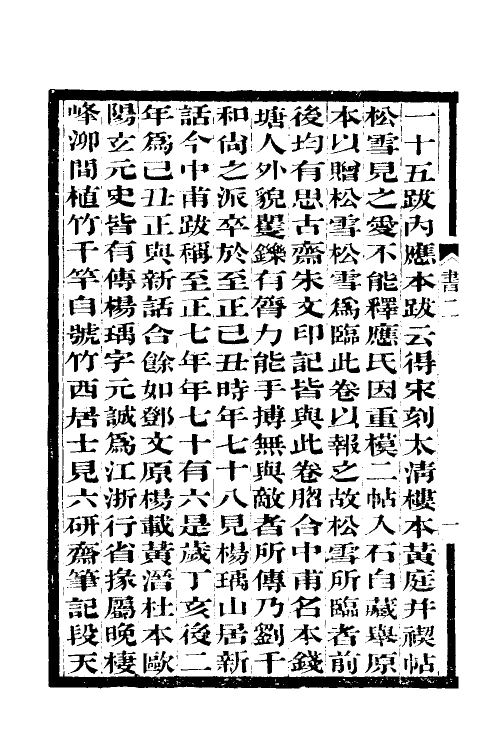 一十五跋内應本跋云得宋刻太清樓本黃庭并禊帖
松雪見之愛不能釋應氏因重模二帖入石自藏舉原
本以贈松雪松雪爲臨此卷以報之故松雪所臨者前
後均有思古齋朱文印記皆與此卷脗合中甫名本錢
塘人外貌矍鑠有膂力能手搏無與敵者所傳乃劉千
和尙之派卒於至正己丑時年七十八見楊瑀山居新
話今中甫跋稱至正七年年七十有六是歲丁亥後二
年爲己丑正與新話合餘如鄧文原楊載黃溍杜本歐
陽玄元史皆有傳楊瑀字元誠爲江浙行省掾屬晚棲
峰泖間植竹千竿自號竹西居士見六硏齋筆記段天
書二
一